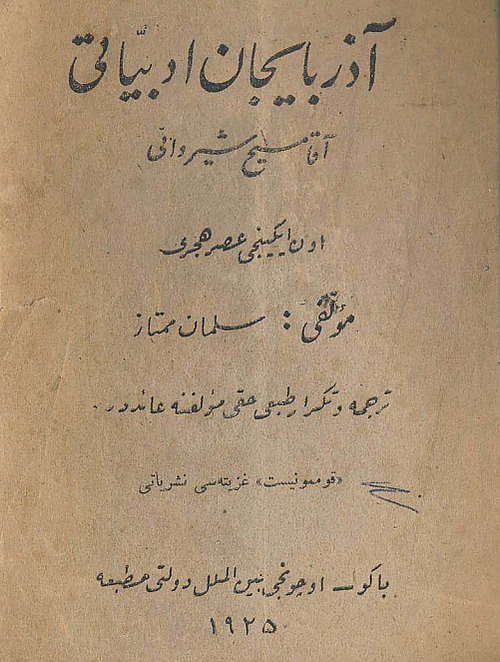 آذربایجان ادبیّاتی
آقا مسیح شیروانی
اون ایکینجی عصر هجری
مؤلّفی : سلمان ممتاز
ترجمه و تکرار طبعی حقی مؤلفنه عائددر .
«قوممونیست» غزیته‌سی نشریاتی
باکو ــ اوچونجی بین الملل دولتی مطبعه
۱۹۲۵